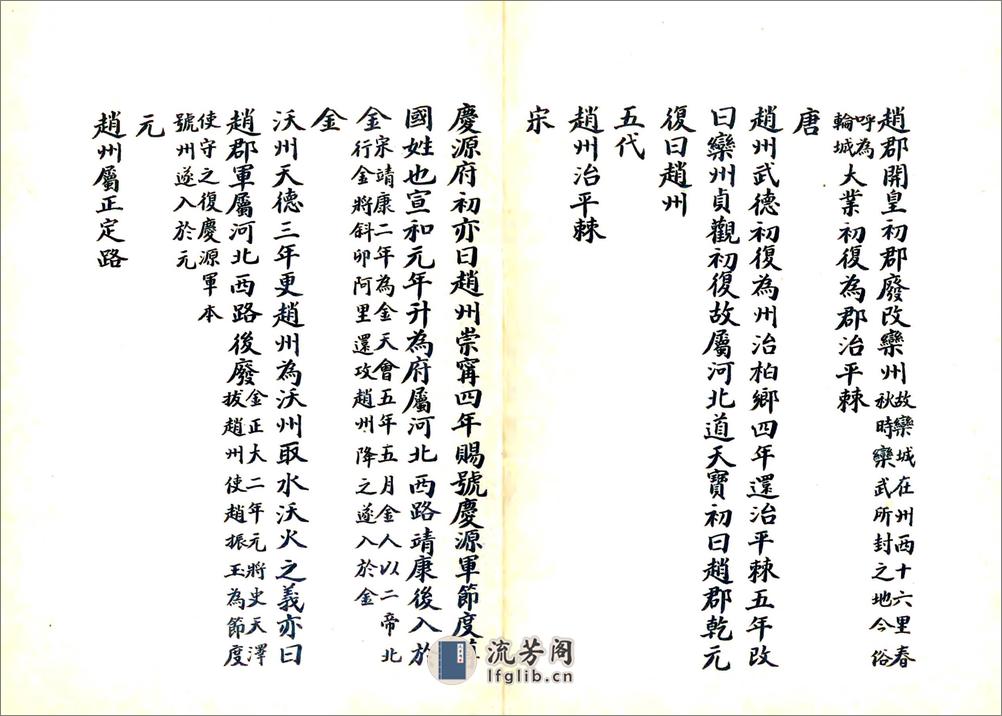 趙郡開皇初郡廢改欒州故欒城在州西十六里春
秋時欒武所封之地今俗
呼為
輪城大業初復為郡治平棘
唐
趙州武德初復為州治柏鄉四年還治平棘五年改
曰欒州貞觀初復故屬河北道天寶初曰趙郡乾元
復曰趙州
五代
趙州治平棘
宋
慶源府初亦曰趙州崇寗四年賜號慶源軍節度
國姓也宣和元年升為府屬河北西路靖康後入於
金宋靖康二年為金天會五年五月金人以二帝北
行金將斜卯阿里還攻趙州降之遂入於金
金
沃州天德三年更趙州為沃州取水沃火之義亦曰
趙郡軍屬河北西路後廢金正大二年元將史天澤
拔趙州使趙振玉為節度
使守之復慶源軍本
號州遂入於元
元
趙州屬正定路
流芳阁
lfglib.cn